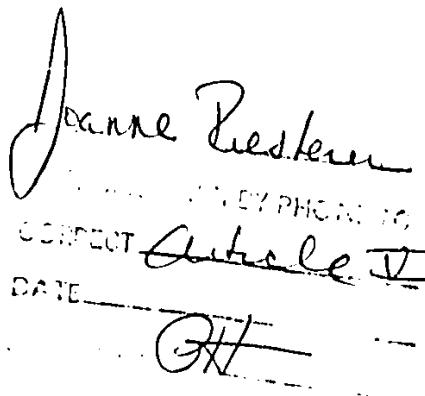 Joanne Riesterer
BY PHONE TO
CORRECT Article V
DATE